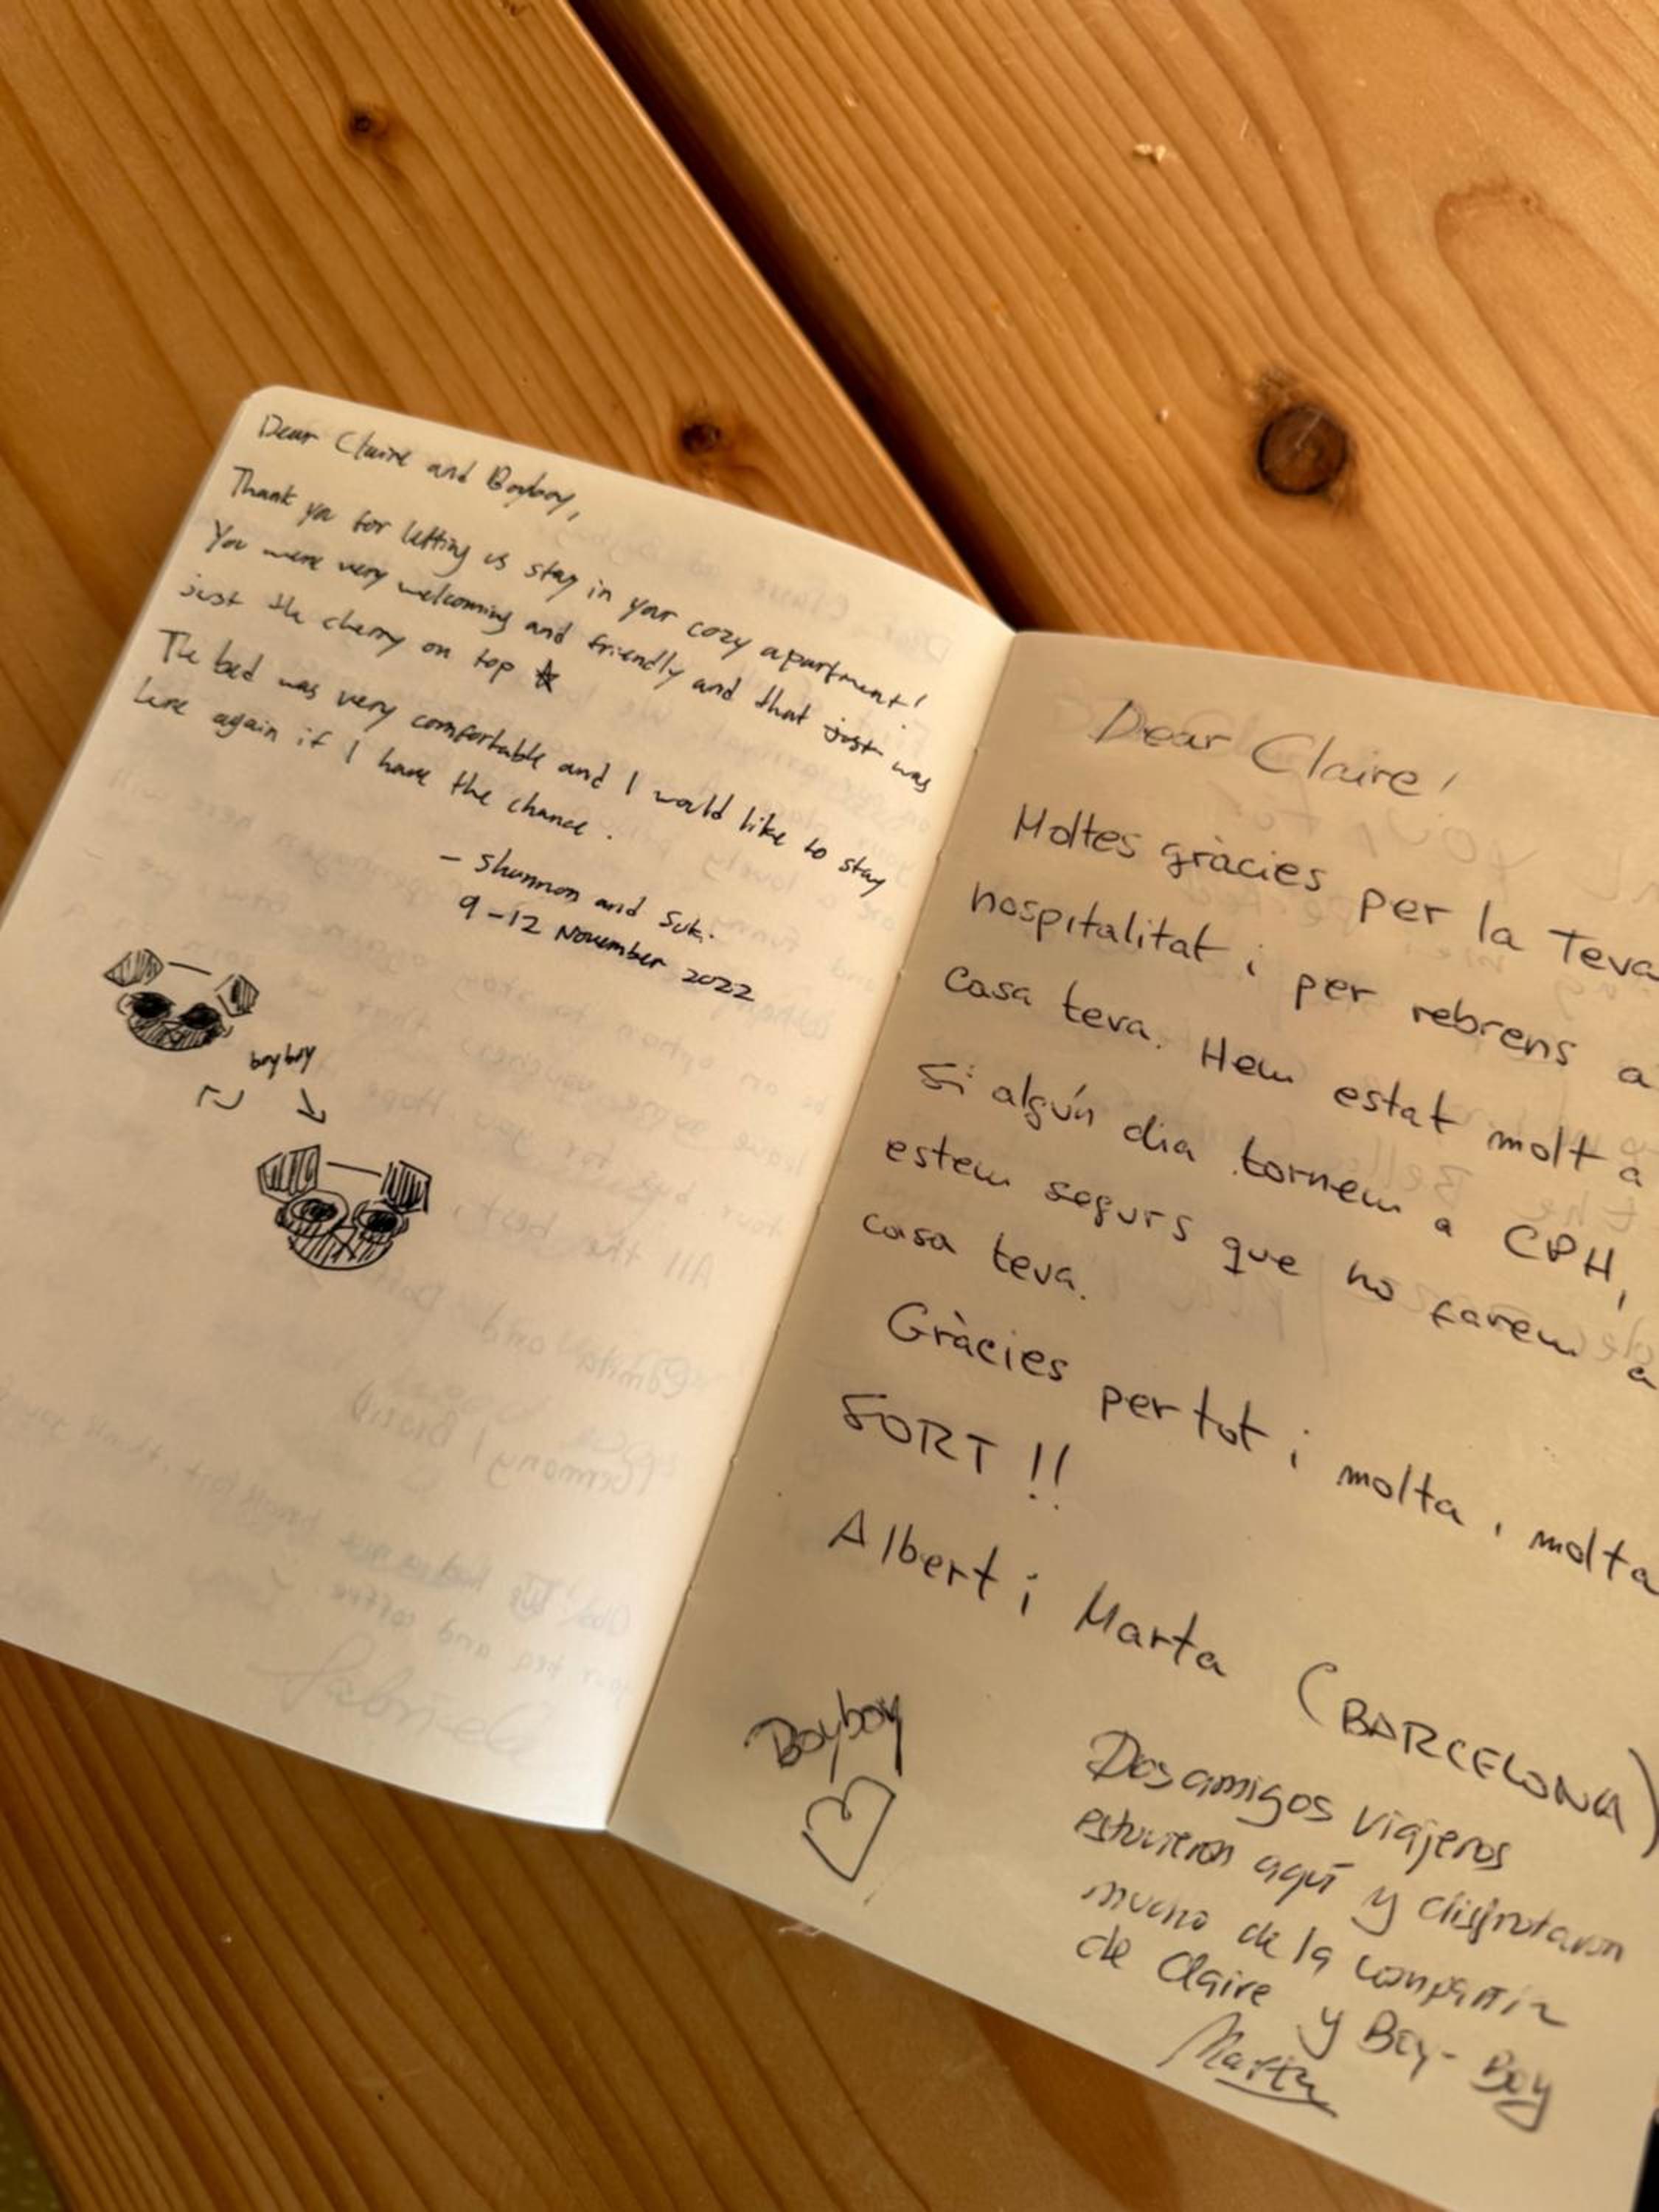 Dear Claire and Boyboy,
Thank you for letting us stay in your cozy apartment!
You were very welcoming and friendly and that just was
just the cherry on top
The bed was very comfortable and I would like to stay
here again if I have the chance.
- Shannon and Suki
9-12 November 2022
boyboy
Dear Claire!
Moltes gràcies per la Teva
hospitalitat i per rebrens a
casa teva. Hem estat molt a
Si algún dia tornem a CPH,
estem segurs que ho farem a
casa teva.
Gràcies per tot i molta, molta
SORT!!
Albert i Marta (BARCELONA)
Boyboy
Dos amigos viajeros
estuvieron aquí y disfrutaron
mucho de la compañía
de Claire y Boy-Boy